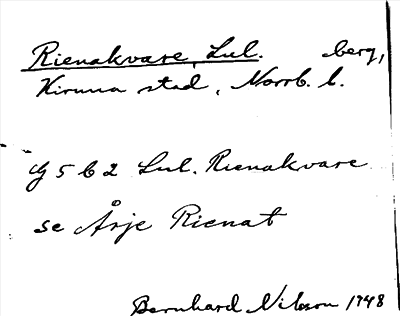 Rienakvare, Lul. berg,
Kiruna stad, Norrb. l.
G 5 b 2 Lul. Rienakvare
se Årje Rienat
Bernhard Nilsson 1948